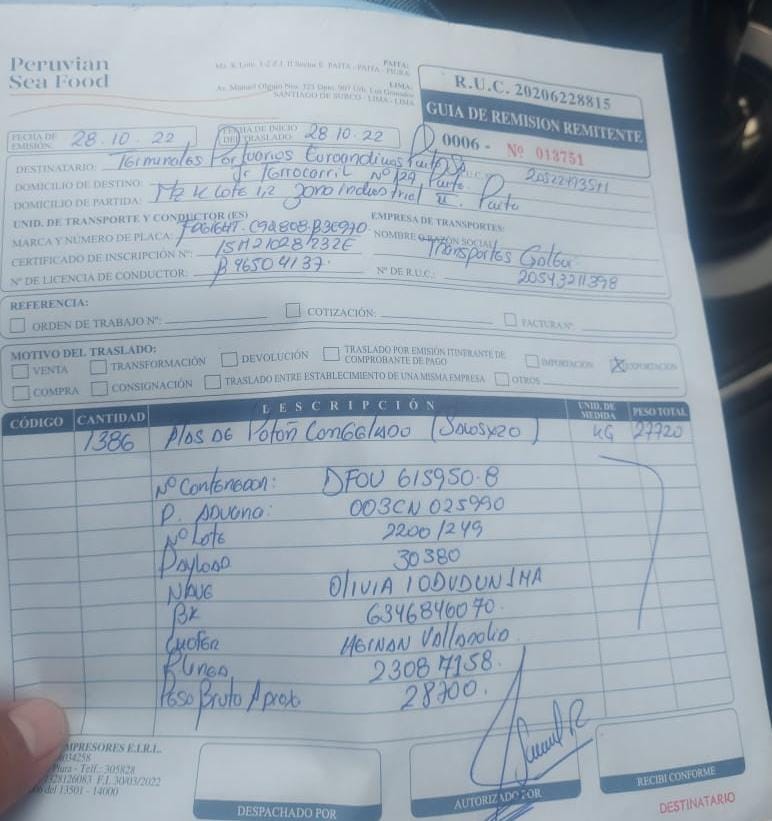 Peruvian
Sea Food
PAITA:
Mz. K Lote. 1-2 Z.I. II Sector E PAITA - PAITA - PIURA
LIMA:
Av. Manuel Olguin Nro. 325 Dpto. 907 Urb. Los Granados
SANTIAGO DE SURCO - LIMA - LIMA
R.U.C. 20206228815
GUIA DE REMISION REMITENTE
0006 - Nº 013751
FECHA DE EMISIÓN: 28.10.22 FECHA DE INICIO DEL TRASLADO: 28 10.22
DESTINATARIO: Terminales Portuarios Euroandinos Paita R.U.C.
DOMICILIO DE DESTINO: Jr Ferrocarril Nº 127, Paita. Paita
DOMICILIO DE PARTIDA: Mz K Lote 1,2 Zona industrial II. Paita
UNID. DE TRANSPORTE Y CONDUCTOR (ES) EMPRESA DE TRANSPORTES:
MARCA Y NUMERO DE PLACA: NOMBRE O RAZÓN SOCIAL: Transportes
CERTIFICADO DE INSCRIPCIÓN Nº:
Nº DE LICENCIA DE CONDUCTOR: B 46504137. Nº DE R.U.C.: 20543211398
REFERENCIA:
ORDEN DE TRABAJO Nº: COTIZACIÓN: FACTURA Nº
MOTIVO DEL TRASLADO:
VENTA TRANSFORMACIÓN DEVOLUCIÓN TRASLADO POR EMISIÓN ITINERANTE DE COMPROBANTE DE PAGO IMPORTACIÓN X EXPORTACIÓN
COMPRA CONSIGNACIÓN TRASLADO ENTRE ESTABLECIMIENTO DE UNA MISMA EMPRESA OTROS
CÓDIGO CANTIDAD DESCRIPCIÓN UNID. DE MEDIDA PESO TOTAL
1386 Alas de Potón Congelado (Sacosx20) KG 27720
Nº Contenedor: DFOU 615950.8
P. Aduana: 003CN 025990
Nº Lote 2200/249
Payload 30380
Nave OLIVIA I
BK 6346846070.
Chofer HERNAN
23087158.
Peso Bruto Aprox 28700.
IMPRESORES E.I.R.L.
Piura - Telf.: 305828
F.I. 30/03/2022
del 13501 - 14000
DESPACHADO POR
AUTORIZADO POR
RECIBI CONFORME
DESTINATARIO